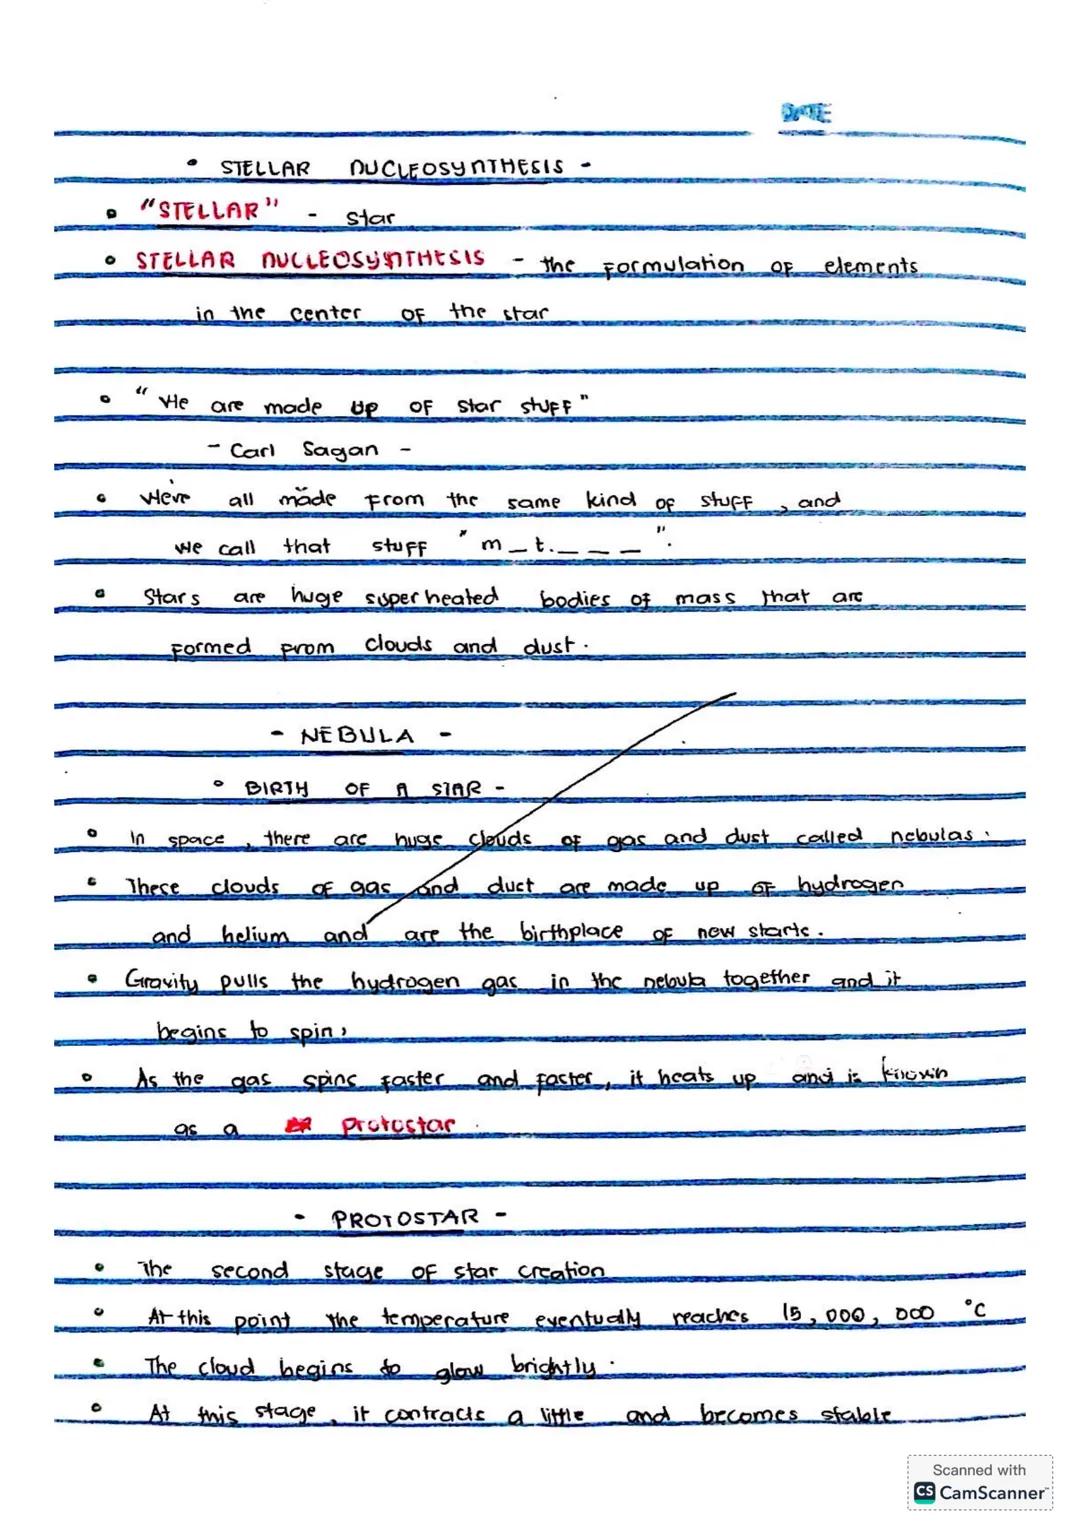 DATE
• STELLAR NUCLEOSYNTHESIS -
• "STELLAR" - star
• STELLAR NUCLEOSYNTHESIS - the formulation of elements
in the center of the star
• "We are made up of star stuff"
- Carl Sagan -
• We're all made from the same kind of stuff, and
we call that stuff "m_t.___".
• Stars are huge super heated bodies of mass that are
formed from clouds and dust.
- NEBULA -
• BIRTH OF A STAR -
• In space, there are huge clouds of gas and dust called nebulas.
• These clouds of gas and duct are made up of hydrogen
and helium and are the birthplace of new starts.
• Gravity pulls the hydrogen gas in the nebula together and it
begins to spin,
• As the gas spins faster and faster, it heats up and is known
as a Protostar.
- PROTOSTAR -
• The second stage of star creation
• At this point the temperature eventually reaches 15,000,000 °C
• The cloud begins to glow brightly.
• At this stage, it contracts a little and becomes stable
Scanned with
CS CamScanner